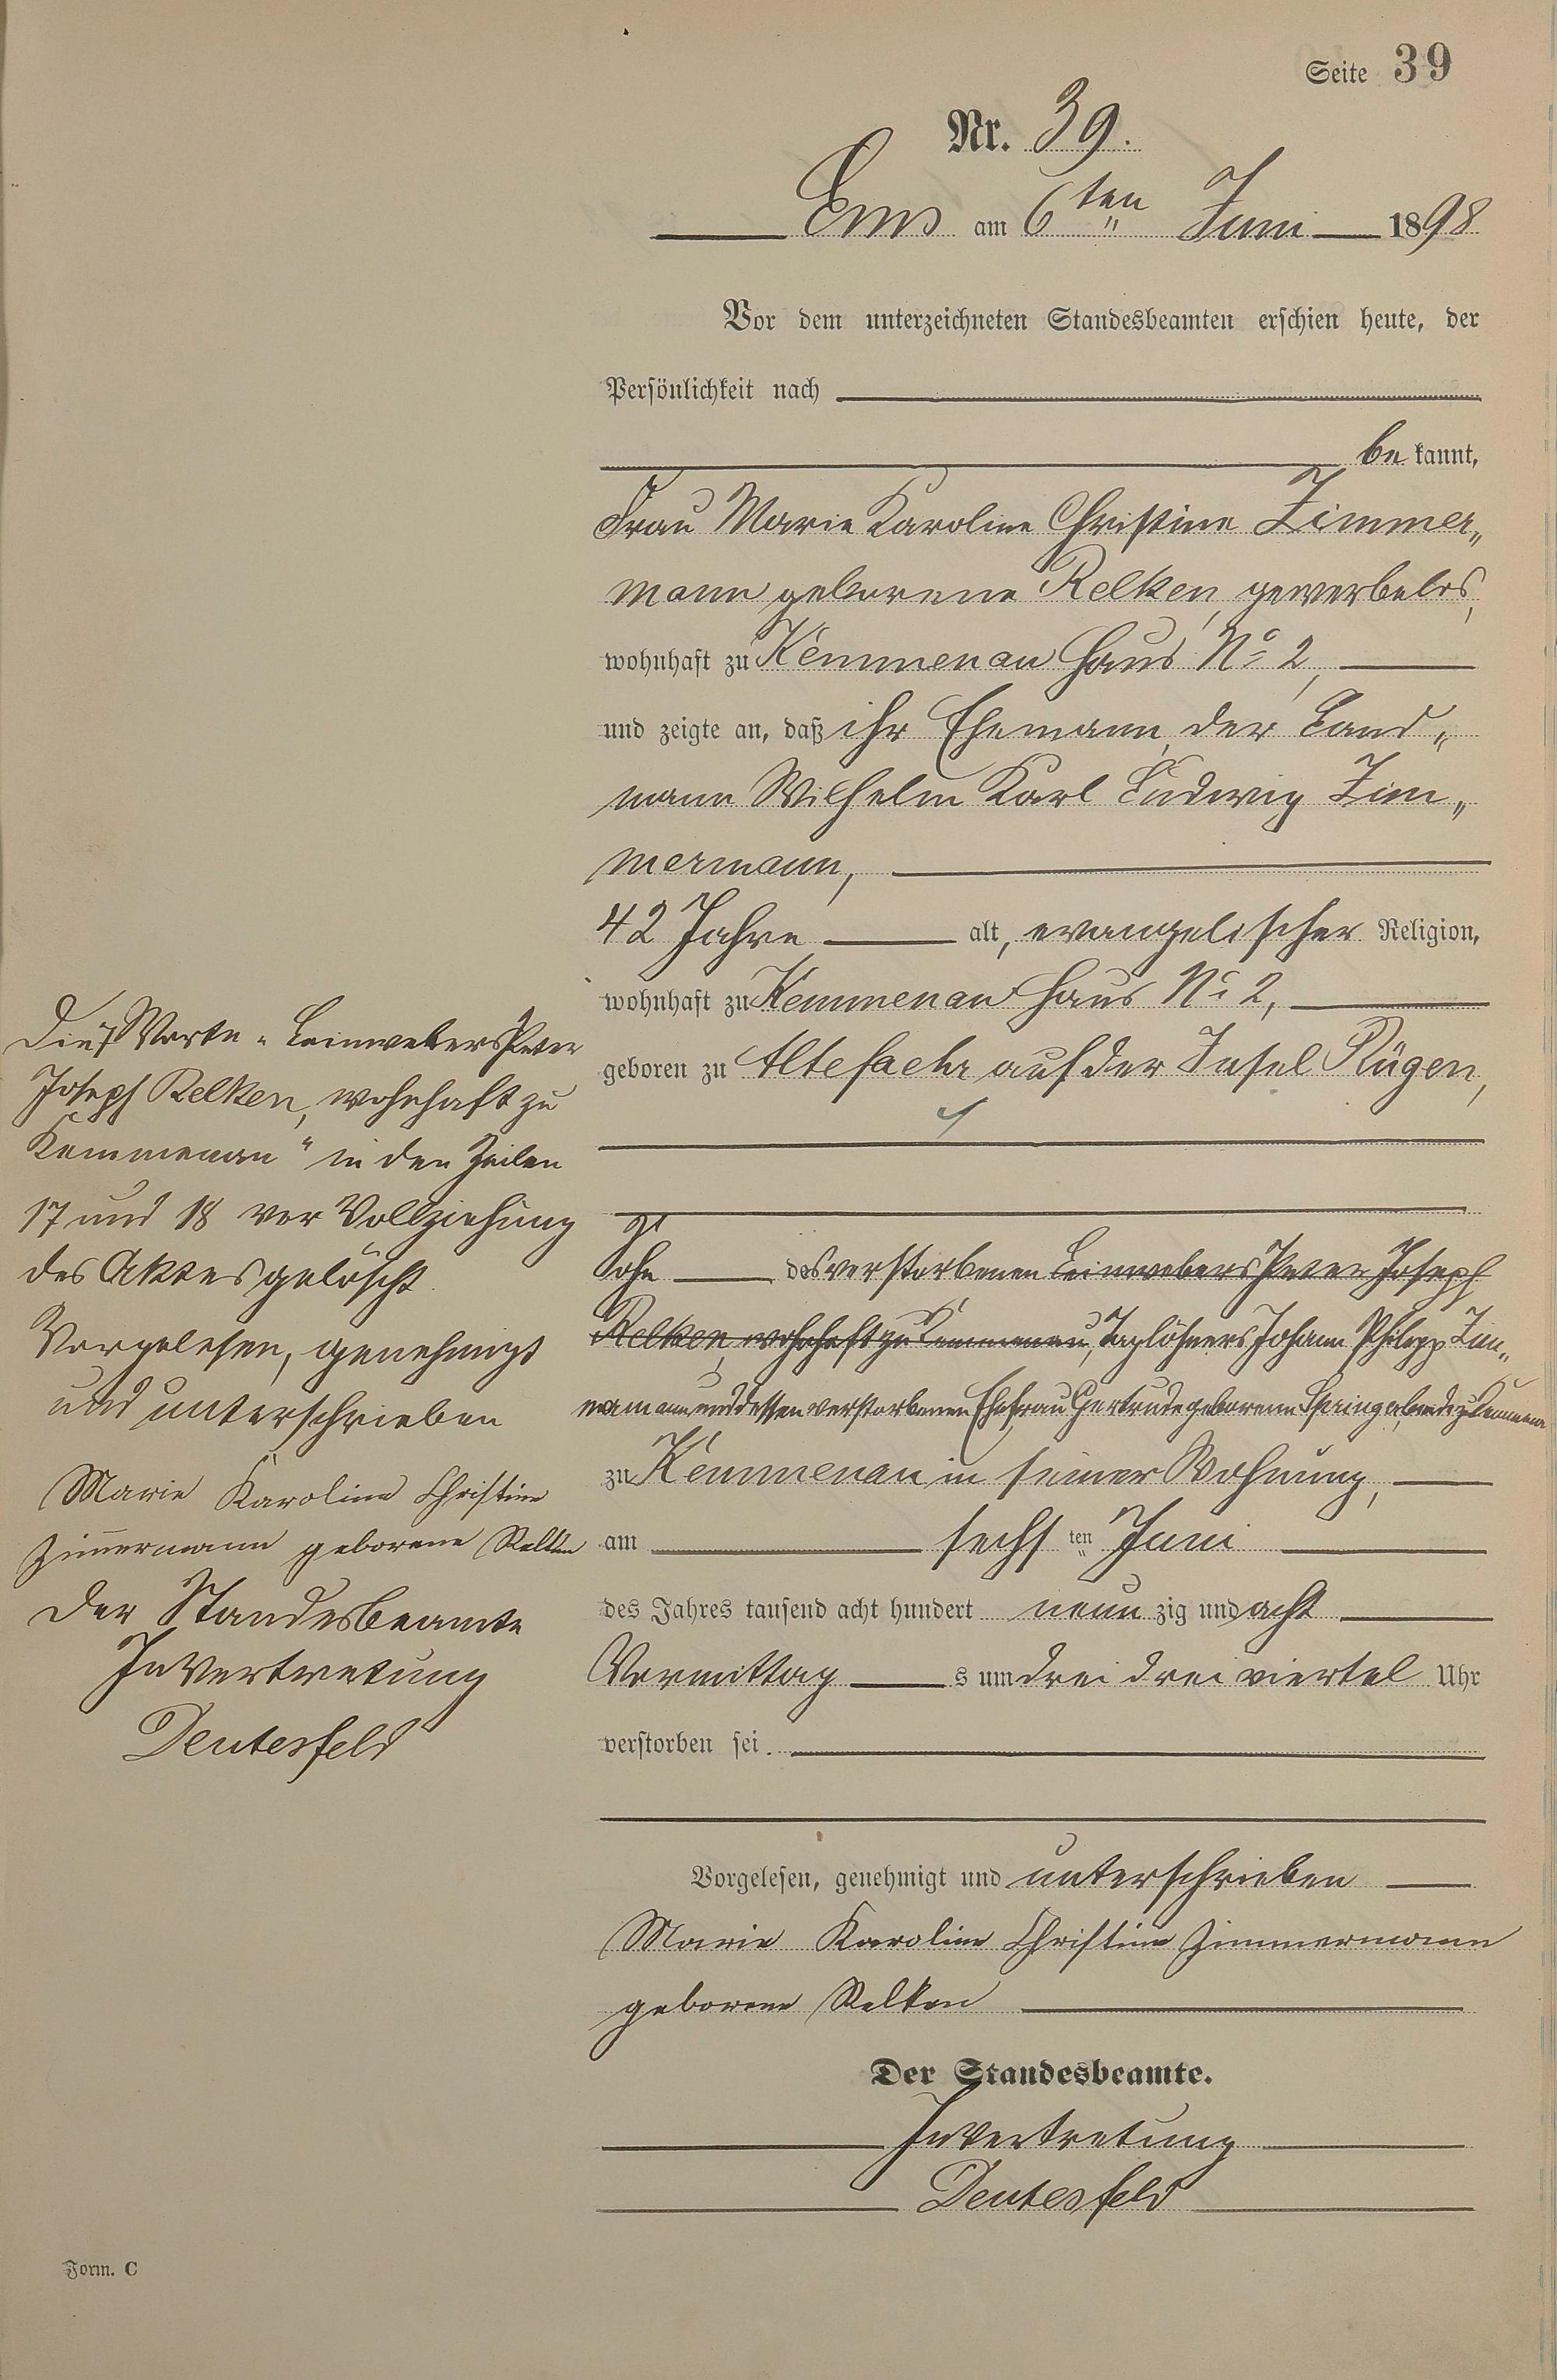 Seite 39
Nr. 39.
Ems am 6ten Juni 1898
Vor dem unterzeichneten Standesbeamten erschien heute, der
Persönlichkeit nach
be kannt,
Frau Marie Karoline Christine Zimmer„
mann geborene Relken, gewerbelos,
wohnhaft zu Kemmenau Haus No 2,
und zeigte an, daß ihr Ehemann, der Land„
mann Wilhelm Karl Ludwig Zim„
mermann,
42 Jahre alt, evangelischer Religion,
wohnhaft zu Kemmenau Haus No 2,
geboren zu Altefaehr auf der Insel Rügen,
Sohn des verstorbenen Leinwebers Peter Joseph
Relken, wohnhaft zu Kemmenau, Taglöhners Johann Philipp Zim„
mermann und dessen verstorbenen Ehefrau Gertrude geborene zu
zu Kemmenau in seiner Wohnung,
am sechs ten Juni
des Jahres tausend acht hundert neun zig und acht
Vormittag s um drei drei viertel Uhr
verstorben sei.
Vorgelesen, genehmigt und unterschrieben
Marie Karoline Christine Zimmermann
geborene Relken
Der Standesbeamte.
In Vertretung
Deutesfeld
Die 7 Worte „Leinwebers Peter
Joseph Relken, wohnhaft zu
Kemmenau“ in den Zeilen
17 und 18 vor Vollziehung
des Aktes gelöscht.
Vorgelesen, genehmigt
und unterschrieben
Marie Karoline Christine
Zimmermann geborene Relken
Der Standesbeamte
In Vertretung
Deutesfeld
Form. C